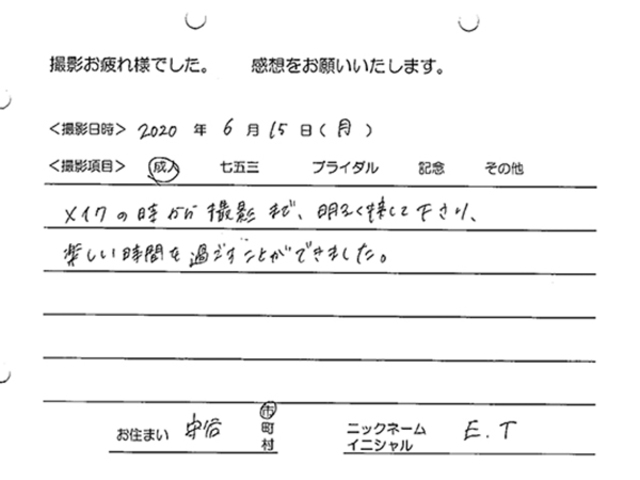 撮影お疲れ様でした。 感想をお願いいたします。
<撮影日時> 2020 年 6 月 15 日(月)
<撮影項目> 成人 七五三 ブライダル 記念 その他
メイクの時から撮影まで、明るく接して下さり、
楽しい時間を過ごすことができました。
お住まい 市町村 ニックネーム イニシャル E.T